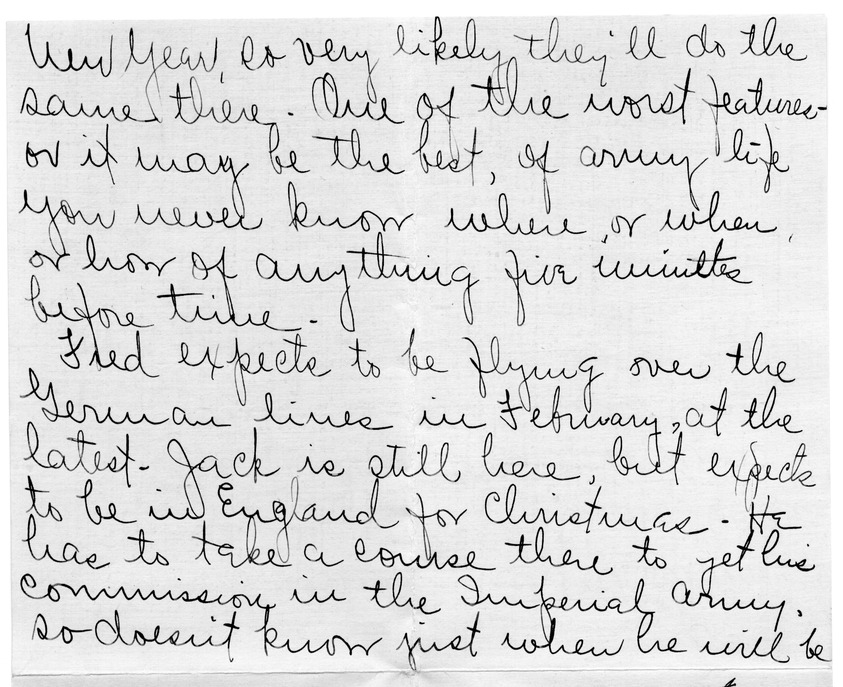 New Year, so very likely they'll do the
same there. One of the worst features-
or it may be the best, of army life
you never know where, or when,
or how of anything five minutes
before time.
Fred expects to be flying over the
German lines in February, at the
latest. Jack is still here, but expects
to be in England for Christmas. He
has to take a course there to get his
commission in the Imperial Army,
so doesn't know just when he will be